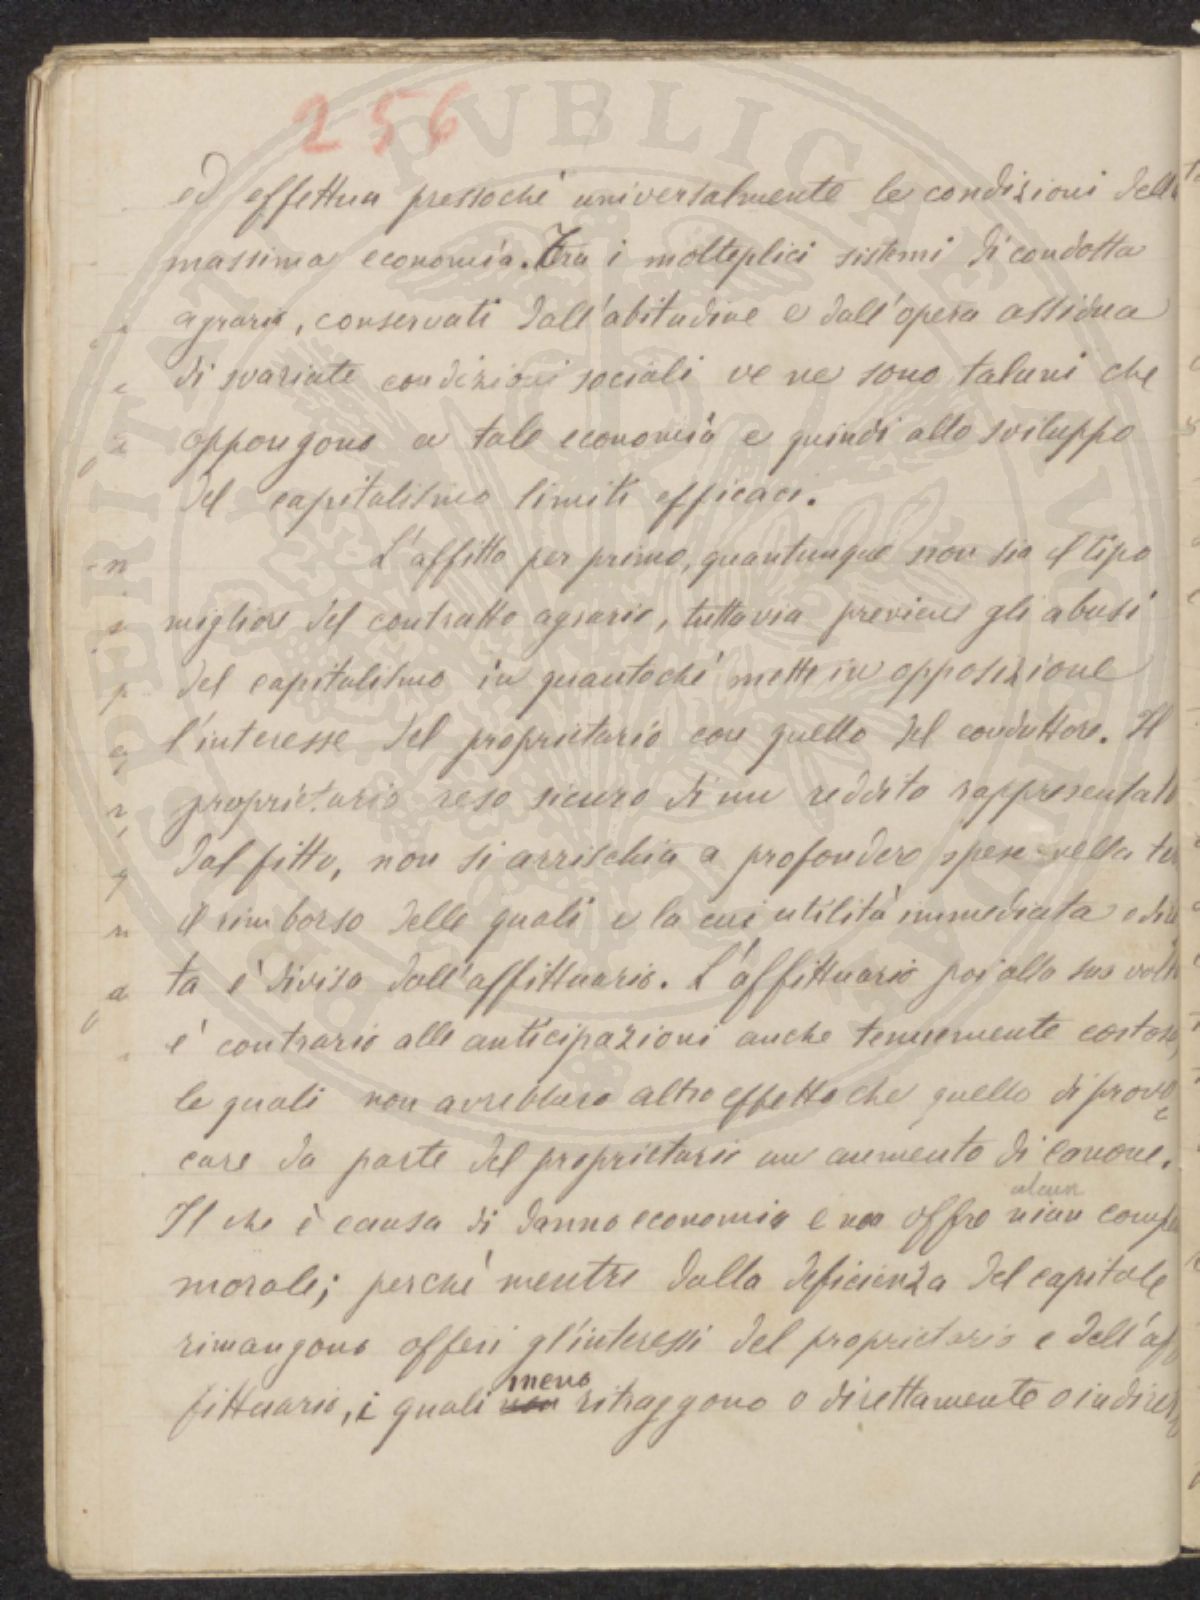 256
ed effettua pressoché universalmente le condizioni della
massima economia. Tra i molteplici sistemi di condotta
agraria, conservati dall'abitudine e dall'opera assidua
di svariate condizioni sociali ve ne sono taluni che
oppongono a tale economia e quindi allo sviluppo
del capitalismo limiti efficaci.
L'affitto per primo, quantunque non sia il tipo
migliore del contratto agrario, tuttavia previene gli abusi
del capitalismo in quantoché mette in opposizione
l'interesse del proprietario con quello del conduttore. Il
proprietario reso sicuro di un reddito rappresentato
dal fitto, non si arrischia a profondere spese nella
il rimborso delle quali e la cui utilità immediata e
ta è divisa dall'affittuario. L'affittuario poi alla sua volta
è contrario alle anticipazioni anche tenuemente costose,
le quali non avrebbero altro effetto che quello di provo
care da parte del proprietario un aumento di canone.
alcun
Il che è causa di danno economico e non offre niun
morale; perché mentre dalla deficienza del capitale
rimangono offesi gl'interessi del proprietario e dell'af
meno
fittuario, i quali non ritraggono o direttamente o indiret
PROSPERITATI PVBLICAE AVGENDAE